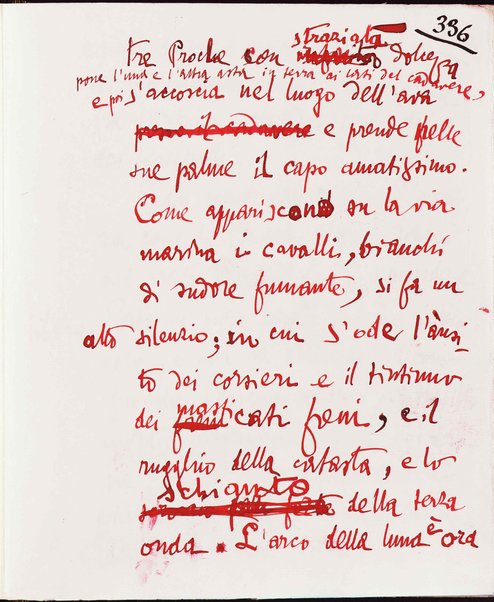 336
straziata
tre Proche con dolcezza
pone l'una e l'altra asta in terra ai lati del cadavere,
e poi s'accorcia nel luogo dell'ara
pone il cadavere e prende nelle
sue palme il capo amatissimo.
Come appariscono su la via
marina i cavalli, bianchi
di sudore fumante, si fa un
alto silenzio; in cui s'ode l'ànsi-
to dei corsieri e il tintinno
masti
dei cati freni, e il
rugghio della catasta, e lo
schianto
della terza
onda. L'arco della luna è ora